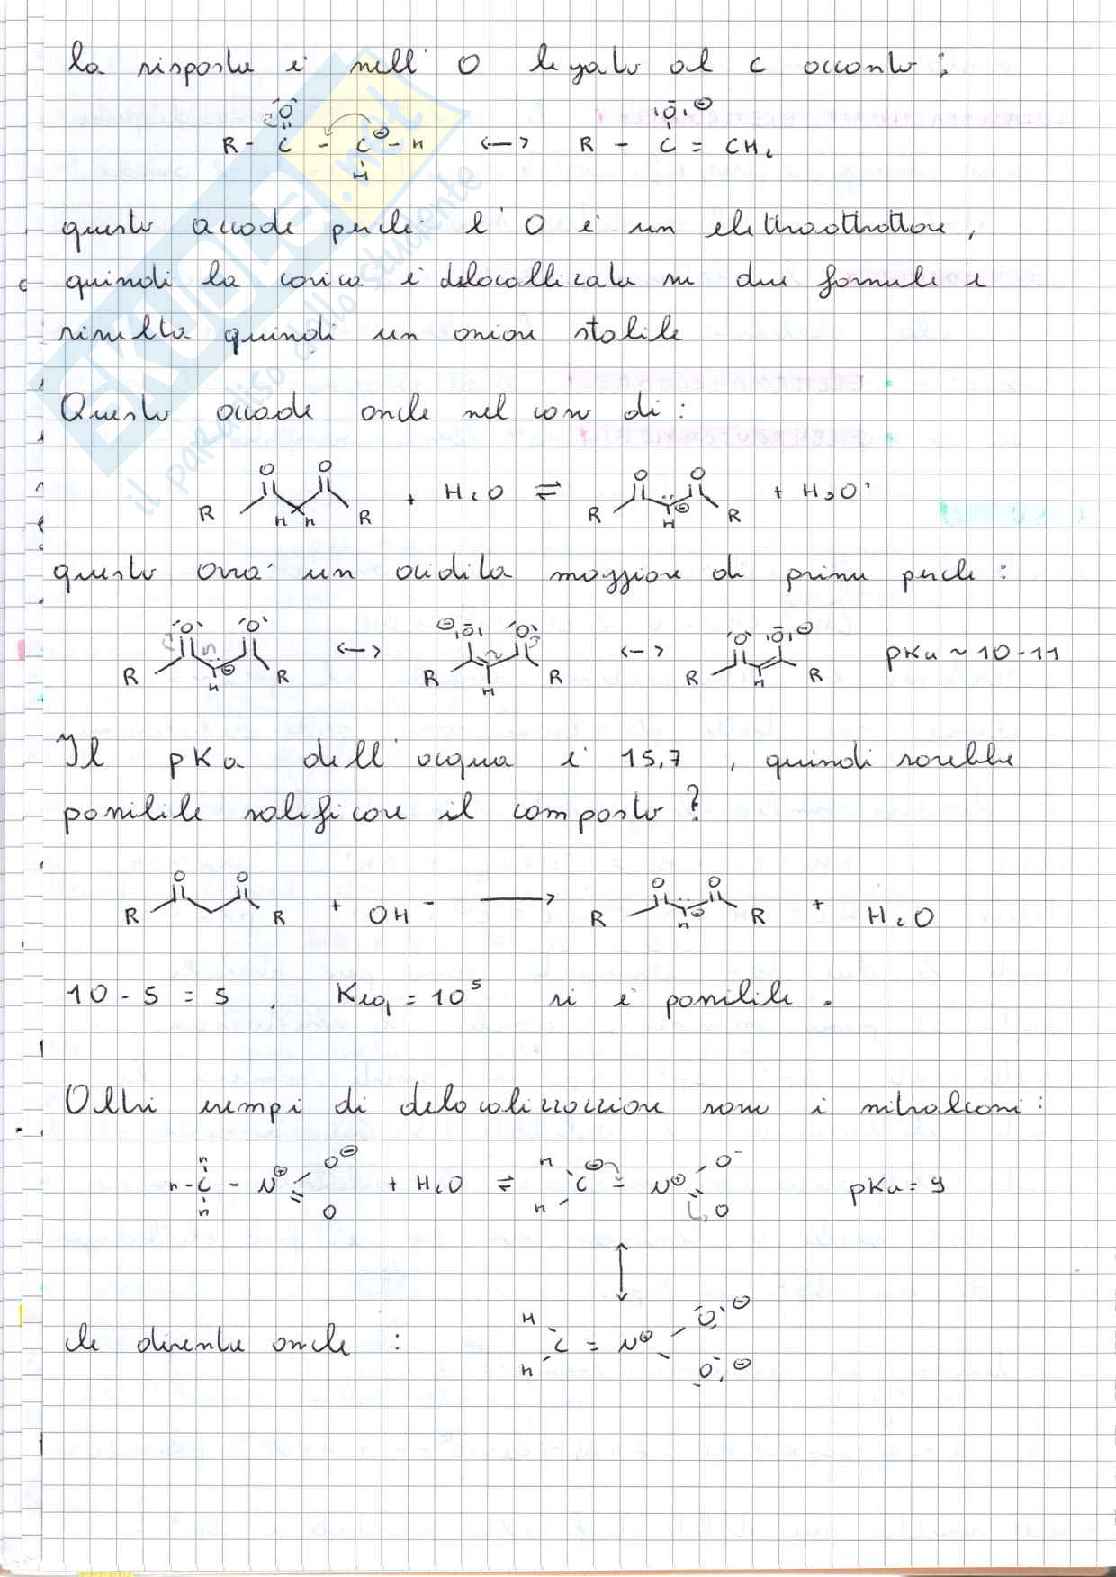 la risposta è nell' O legato al C accanto:
R - C - C - H <-> R - C = CH2
questo accade perché l' O è un elettroattrattore,
quindi la carica è delocallizzata su due formule e
risulta quindi un anione stabile
Questo accade anche nel caso di:
R R + H2O ⇌ R R + H3O+
questo avrà un acidità maggiore di prima perche:
R R <-> R R <-> R R pKa ~ 10-11
Il pKa dell' acqua è 15,7, quindi sarebbe
possibile salificare il composto?
R R + OH- → R R + H2O
10 - 5 = 5, Keq = 10^5 si è possibile.
Altri esempi di delocalizzazione sono i nitroalcani:
H-C-N⊕ O⊖ O + H2O ⇌ H H C⊖ - N⊕ O- O pKa = 9
che diventa anche: H H C = N⊕ O⊖ O⊖
SKUOLA.net
il paradiso dello studente